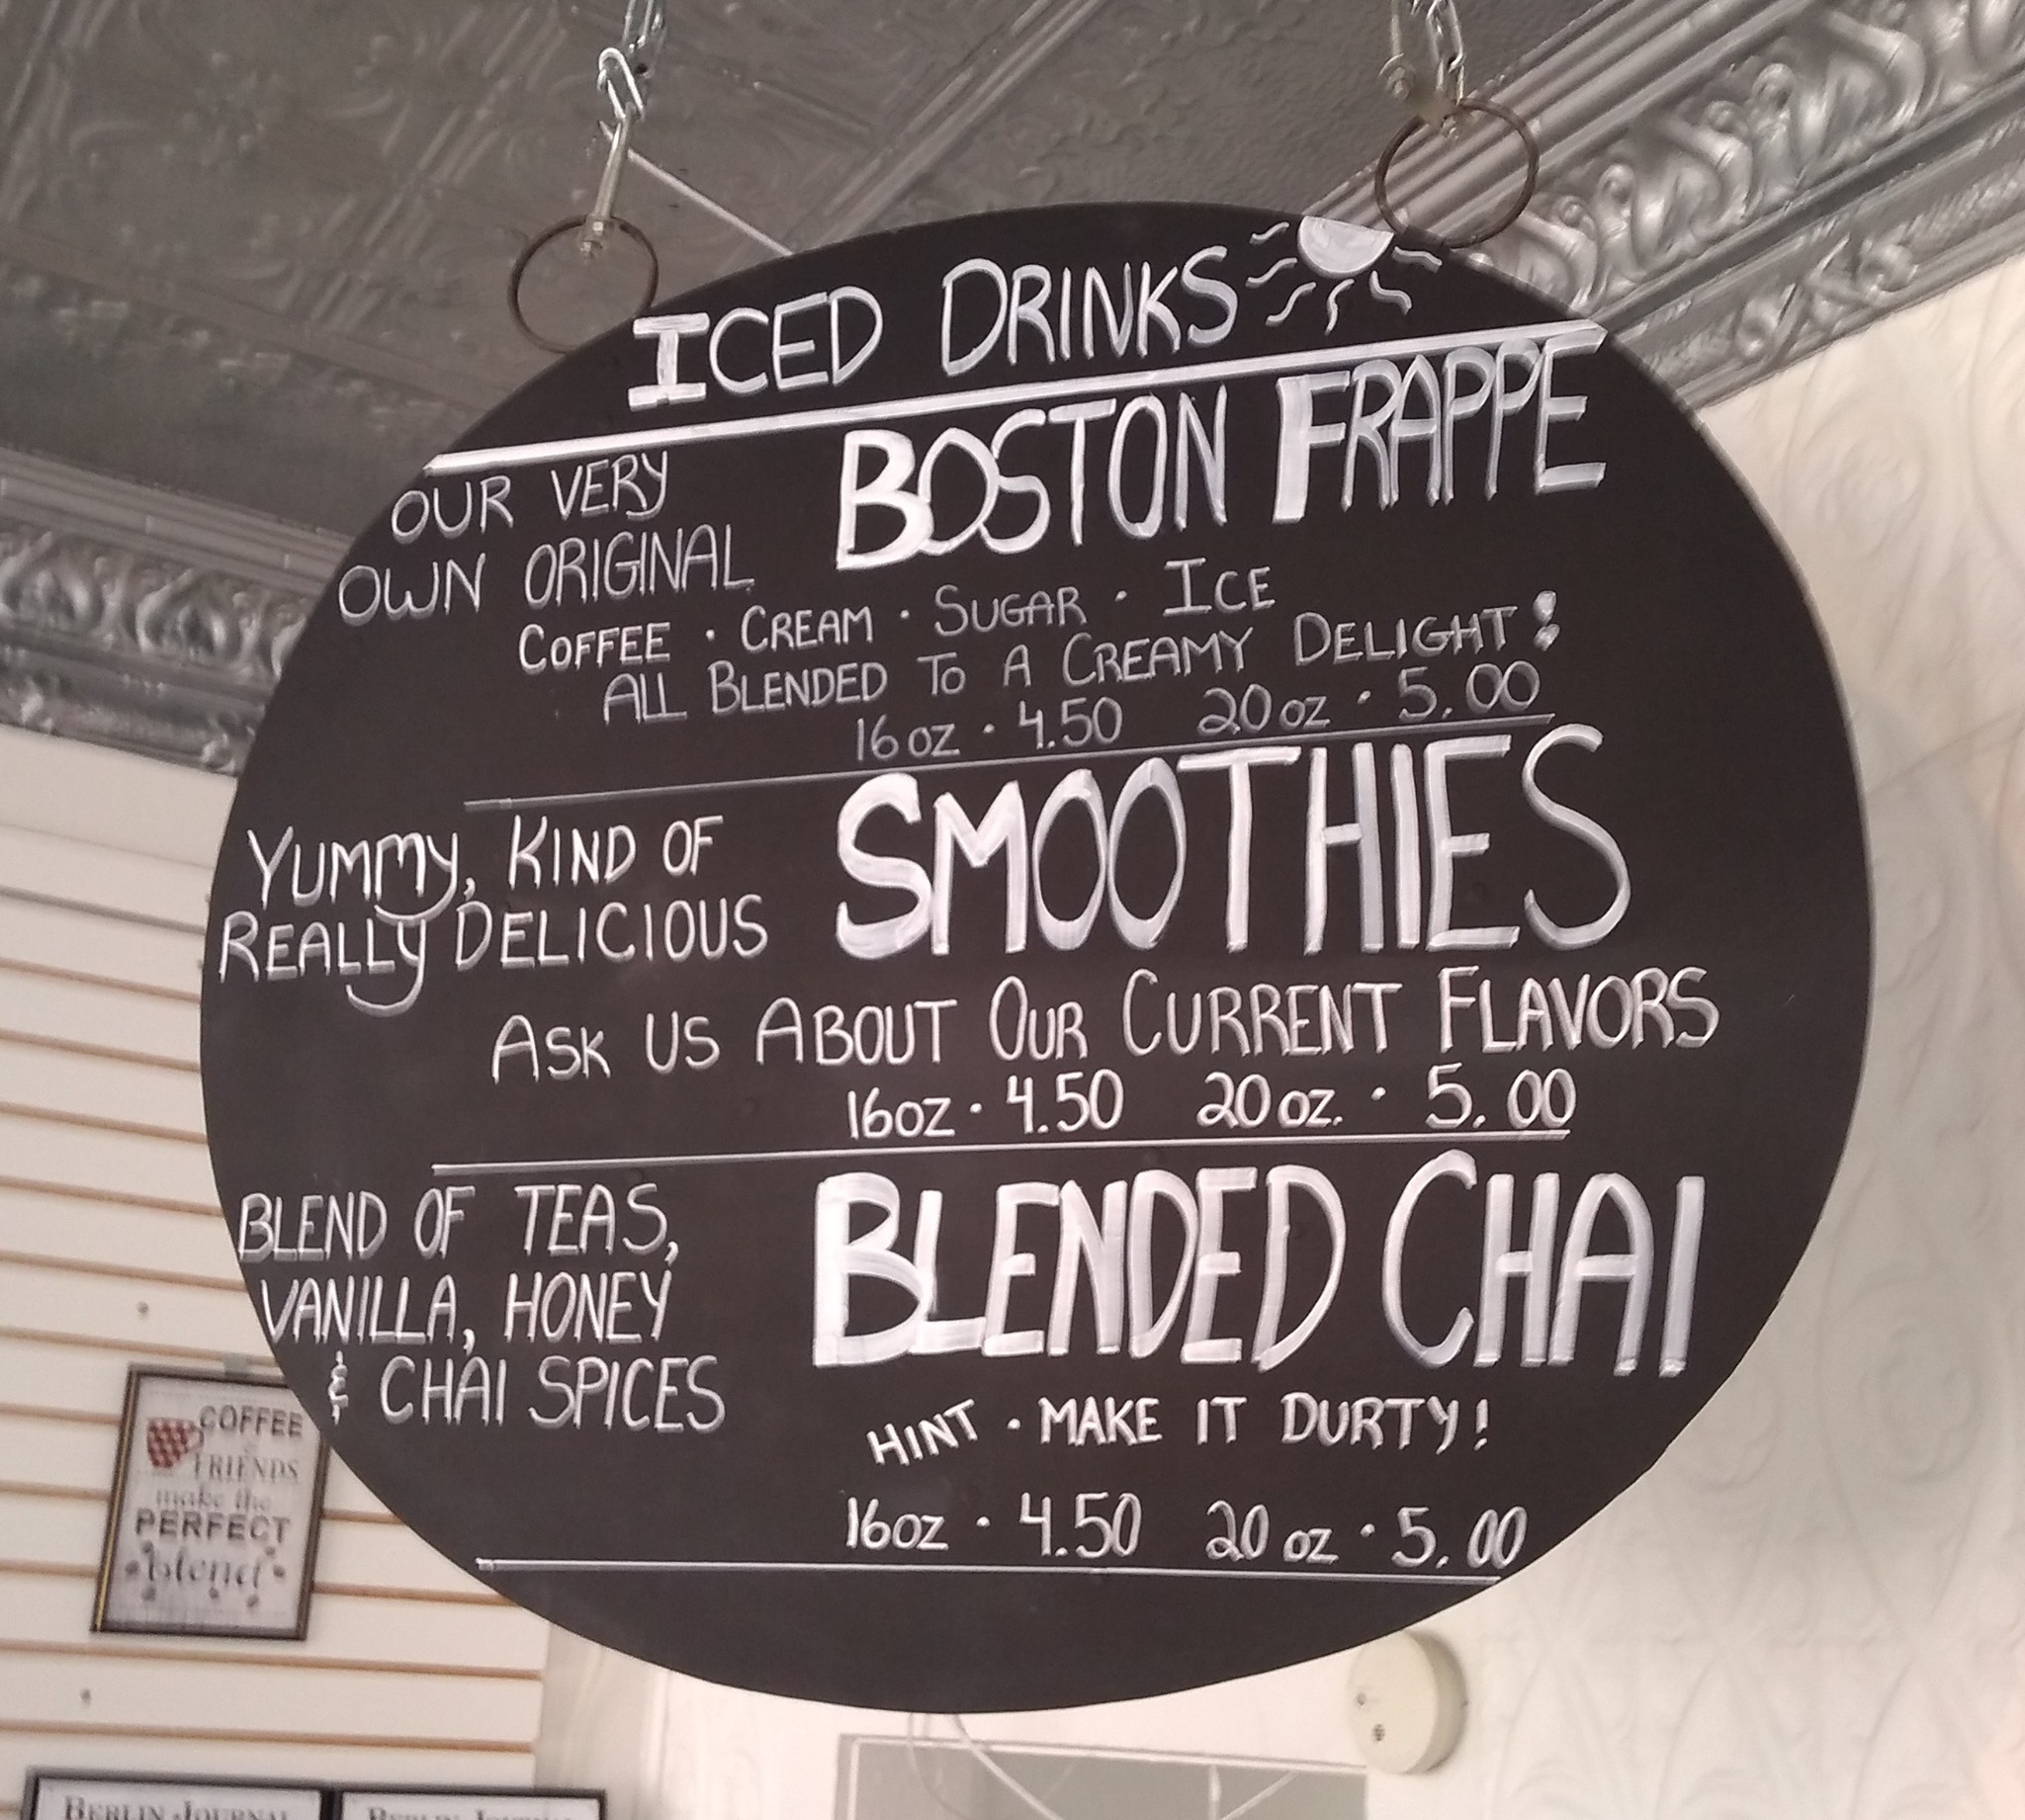 ICED DRINKS
OUR VERY
OWN ORIGINAL
BOSTON FRAPPE
COFFEE · CREAM · SUGAR · ICE
ALL BLENDED TO A CREAMY DELIGHT!
16oz · 4.50 20oz · 5.00
YUMMY, KIND OF
REALLY DELICIOUS
SMOOTHIES
ASK US ABOUT OUR CURRENT FLAVORS
16oz · 4.50 20oz. · 5.00
BLEND OF TEAS,
VANILLA, HONEY
& CHAI SPICES
BLENDED CHAI
HINT · MAKE IT DURTY!
16oz · 4.50 20oz · 5.00
COFFEE
&
FRIENDS
make the
PERFECT
blend
BERLIN JOURNAL
BERLIN JOURNAL